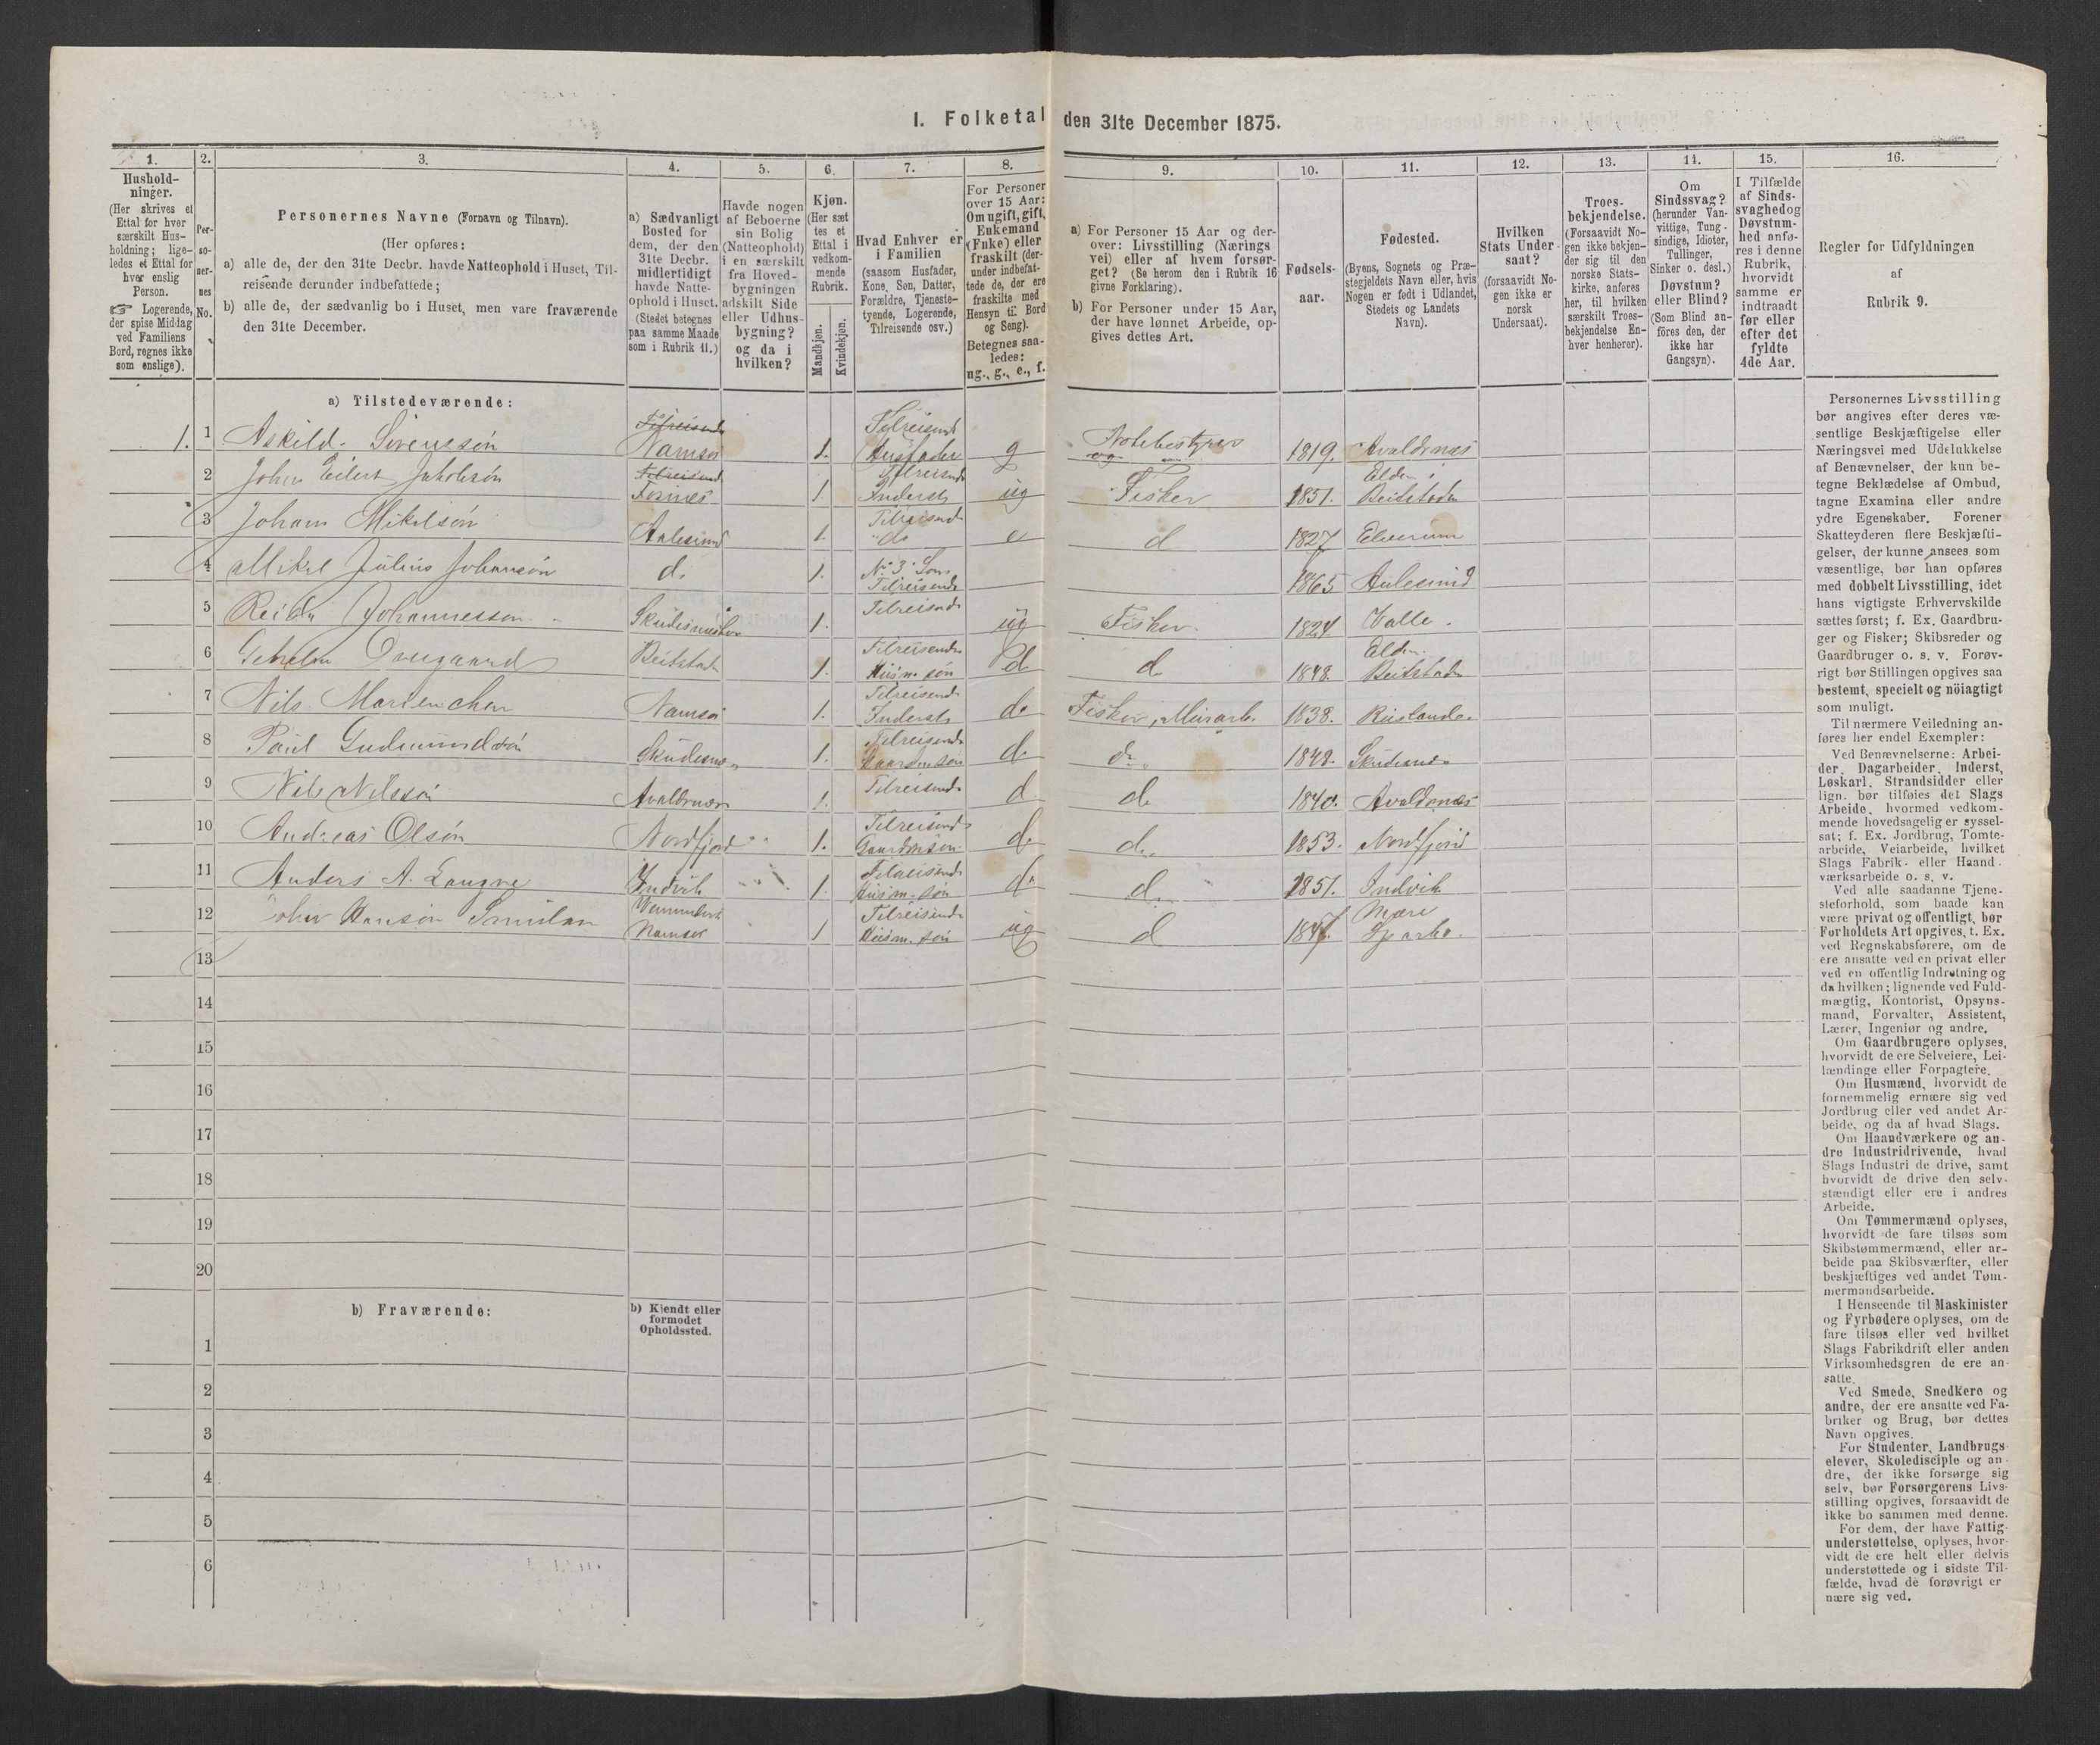 I. Folketal den 31te December 1875.
1.
Hushold-
ninger.
(Her skrives et
Ettal for hver
særskilt Hus-
holdning; lige-
ledes et Ettal for
hver enslig
Person.
☞ Logerende,
der spise Middag
ved Familiens
Bord, regnes ikke
som enslige).
2.
Per-
so-
ner-
nes
No.
3.
Personernes Navne (Fornavn og Tilnavn).
(Her opføres:
a) alle de, der den 31te Decbr. havde Natteophold i Huset, Til-
reisende derunder indbefattede;
b) alle de, der sædvanlig bo i Huset, men vare fraværende
den 31te December.
4.
a) Sædvanligt
Bosted for
dem, der den
31te Decbr.
midlertidigt
havde Natte-
ophold i Huset.
(Stedet betegnes
paa samme Maade
som i Rubrik 11.)
5.
Havde nogen
af Beboerne
sin Bolig
(Natteophold)
i en særskilt
fra Hoved-
bygningen
adskilt Side
eller Udhus-
bygning?
og da i
hvilken?
6.
Kjøn.
(Her sæt
tes et
Ettal i
vedkom-
mende
Rubrik.
Mandkjøn.
Kvindekjøn.
7.
Hvad Enhver er
i Familien
(saasom Husfader,
Kone, Søn, Datter,
Forældre, Tjeneste-
tyende, Logerende,
Tilreisende osv.)
8.
For Personer
over 15 Aar:
Om ugift, gift,
Enkemand
(Enke) eller
fraskilt (der-
under indbefat-
tede de, der ere
fraskilte med
Hensyn til Bord
og Seng).
Betegnes saa-
ledes:
ug., g., e., f.
9.
a) For Personer 15 Aar og der-
over: Livsstilling (Nærings
vei) eller af hvem forsør-
get? (Se herom den i Rubrik 16
givne Forklaring).
b) For Personer under 15 Aar,
der have lønnet Arbeide, op-
gives dettes Art.
10.
Fødsels-
aar.
11.
Fødested.
(Byens, Sognets og Præ-
stegjeldets Navn eller, hvis
Nogen er født i Udlandet,
Stedets og Landets
Navn).
12.
Hvilken
Stats Under-
saat?
(forsaavidt No-
gen ikke er
norsk
Undersaat).
13.
Troes-
bekjendelse.
(Forsaavidt No-
gen ikke bekjen-
der sig til den
norske Stats-
kirke, anføres
her, til hvilken
særskilt Troes-
bekjendelse En-
hver henhører).
14.
Om
Sindssvag?
(herunder Van-
vittige, Tung-
sindige, Idioter,
Tullinger,
Sinker o. desl.)
Døvstum?
eller Blind?
(Som Blind an-
føres den, der
ikke har
Gangsyn).
15.
I Tilfælde
af Sinds-
svaghedog
Døvstum-
hed anfø-
res i denne
Rubrik,
hvorvidt
samme er
indtraadt
før eller
efter det
fyldte
4de Aar.
16.
Regler for Udfyldningen
af
Rubrik 9.
a) Tilstedeværende:
1. 1 Askild Sørenssøn Tilreisende Namsos 1. Tilreisende Husfader g Notebestyrer og 1819. Avaldsnæs
2 Johan Eilert Jakobsøn Tilreisende Fosnæs 1. Tilreisende Inderst ug Fisker 1851. Elden i Beitstaden
3 Johan Mikelsøn Aalesund 1. Tilreisend do e d 1827 Elverum
4 Mikel Julius Johansøn d. 1. No 3 Søn Tilreisende 1865 Aalesund
5 Reidar Johannesson Skudesneshavn 1. Tilreisende ug Fisker. 1824. Valle.
6 Ovegaard Beitstad 1. Tilreisende Husm. søn do d. 1848. Elden Beitstaden
7 Nils Namsos 1. Tilreisende Inderst do Fisker, Murarb. 1838. Rusland
8 Paul Gudmundsøn Skudesnæs 1. Tilreisende Gaardm søn d. do 1848. Skudesnæs
9 Nils Nilssøn Avaldsnæs 1. Tilreisende d do 1840. Avaldsnæs
10 Andreas Olsøn Nordfjord 1. Tilreisende Gaardm søn. d. d. 1853. Nordfjord
11 Anders A. Indvik 1. Tilreisende Husm. søn do d. 1851. Indvik
12 Johan Hansøn Namsos 1 Tilreisende Husm. søn ug d Mære Sparbo.
13
14
15
16
17
18
19
20
b) Fraværende:
b) Kjendt eller
formodet
Opholdssted.
1
2
3
4
5
6
Personernes Livsstilling
bør angives efter deres væ-
sentlige Beskjæftigelse eller
Næringsvei med Udelukkelse
af Benævnelser, der kun be-
tegne Beklædelse af Ombud,
tagne Examina eller andre
ydre Egenskaber. Forener
Skatteyderen flere Beskjæfti-
gelser, der kunne ansees som
væsentlige, bør han opføres
med dobbelt Livsstilling, idet
hans vigtigste Erhvervskilde
sættes først; f. Ex. Gaardbru-
ger og Fisker; Skibsreder og
Gaardbruger o. s. v. Forøv-
rigt bør Stillingen opgives saa
bestemt, specielt og nöiagtigt
som muligt.
Til nærmere Veiledning an-
føres her endel Exempler:
Ved Benævnelserne: Arbei-
der, Dagarbeider, Inderst,
Løskarl, Strandsidder eller
lign. bør tilføies det Slags
Arbeide, hvormed vedkom-
mende hovedsagelig er syssel-
sat; f. Ex. Jordbrug, Tomte-
arbeide, Veiarbeide, hvilket
Slags Fabrik- eller Haand-
værksarbeide o. s. v.
Ved alle saadanne Tjene-
steforhold, som baade kan
være privat og offentligt, bør
Forholdets Art opgives, t. Ex.
ved Regnskabsførere, om de
ere ansatte ved en privat eller
ved en offentlig Indretning og
da hvilken; lignende ved Fuld-
mægtig, Kontorist, Opsyns-
mand, Forvalter, Assistent,
Lærer, Ingeniør og andre.
Om Gaardbrugere oplyses,
hvorvidt de ere Selveiere, Lei-
lændinge eller Forpagtere.
Om Husmænd, hvorvidt de
fornemmelig ernære sig ved
Jordbrug eller ved andet Ar-
beide, og da af hvad Slags.
Om Haandværkere og an-
dre Industridrivende, hvad
Slags Industri de drive, samt
hvorvidt de drive den selv-
stændigt eller ere i andres
Arbeide.
Om Tømmermænd oplyses,
hvorvidt de fare tilsøs som
Skibstømmermænd, eller ar-
beide paa Skibsværfter, eller
beskjæftiges ved andet Tøm-
mermandsarbeide.
I Henseende til Maskinister
og Fyrbødere oplyses, om de
fare tilsøs eller ved hvilket
Slags Fabrikdrift eller anden
Virksomhedsgren de ere an-
satte.
Ved Smede, Snedkere og
andre, der ere ansatte ved Fa-
briker og Brug, bør dettes
Navn opgives.
For Studenter, Landbrugs
elever, Skoledisciple og an-
dre, der ikke forsørge sig
selv, bør Forsørgerens Livs-
stilling opgives, forsaavidt de
ikke bo sammen med denne.
For dem, der have Fattig-
understøttelse, oplyses, hvor-
vidt de ere helt eller delvis
understøttede og i sidste Til-
fælde, hvad de forøvrigt er
nære sig ved.